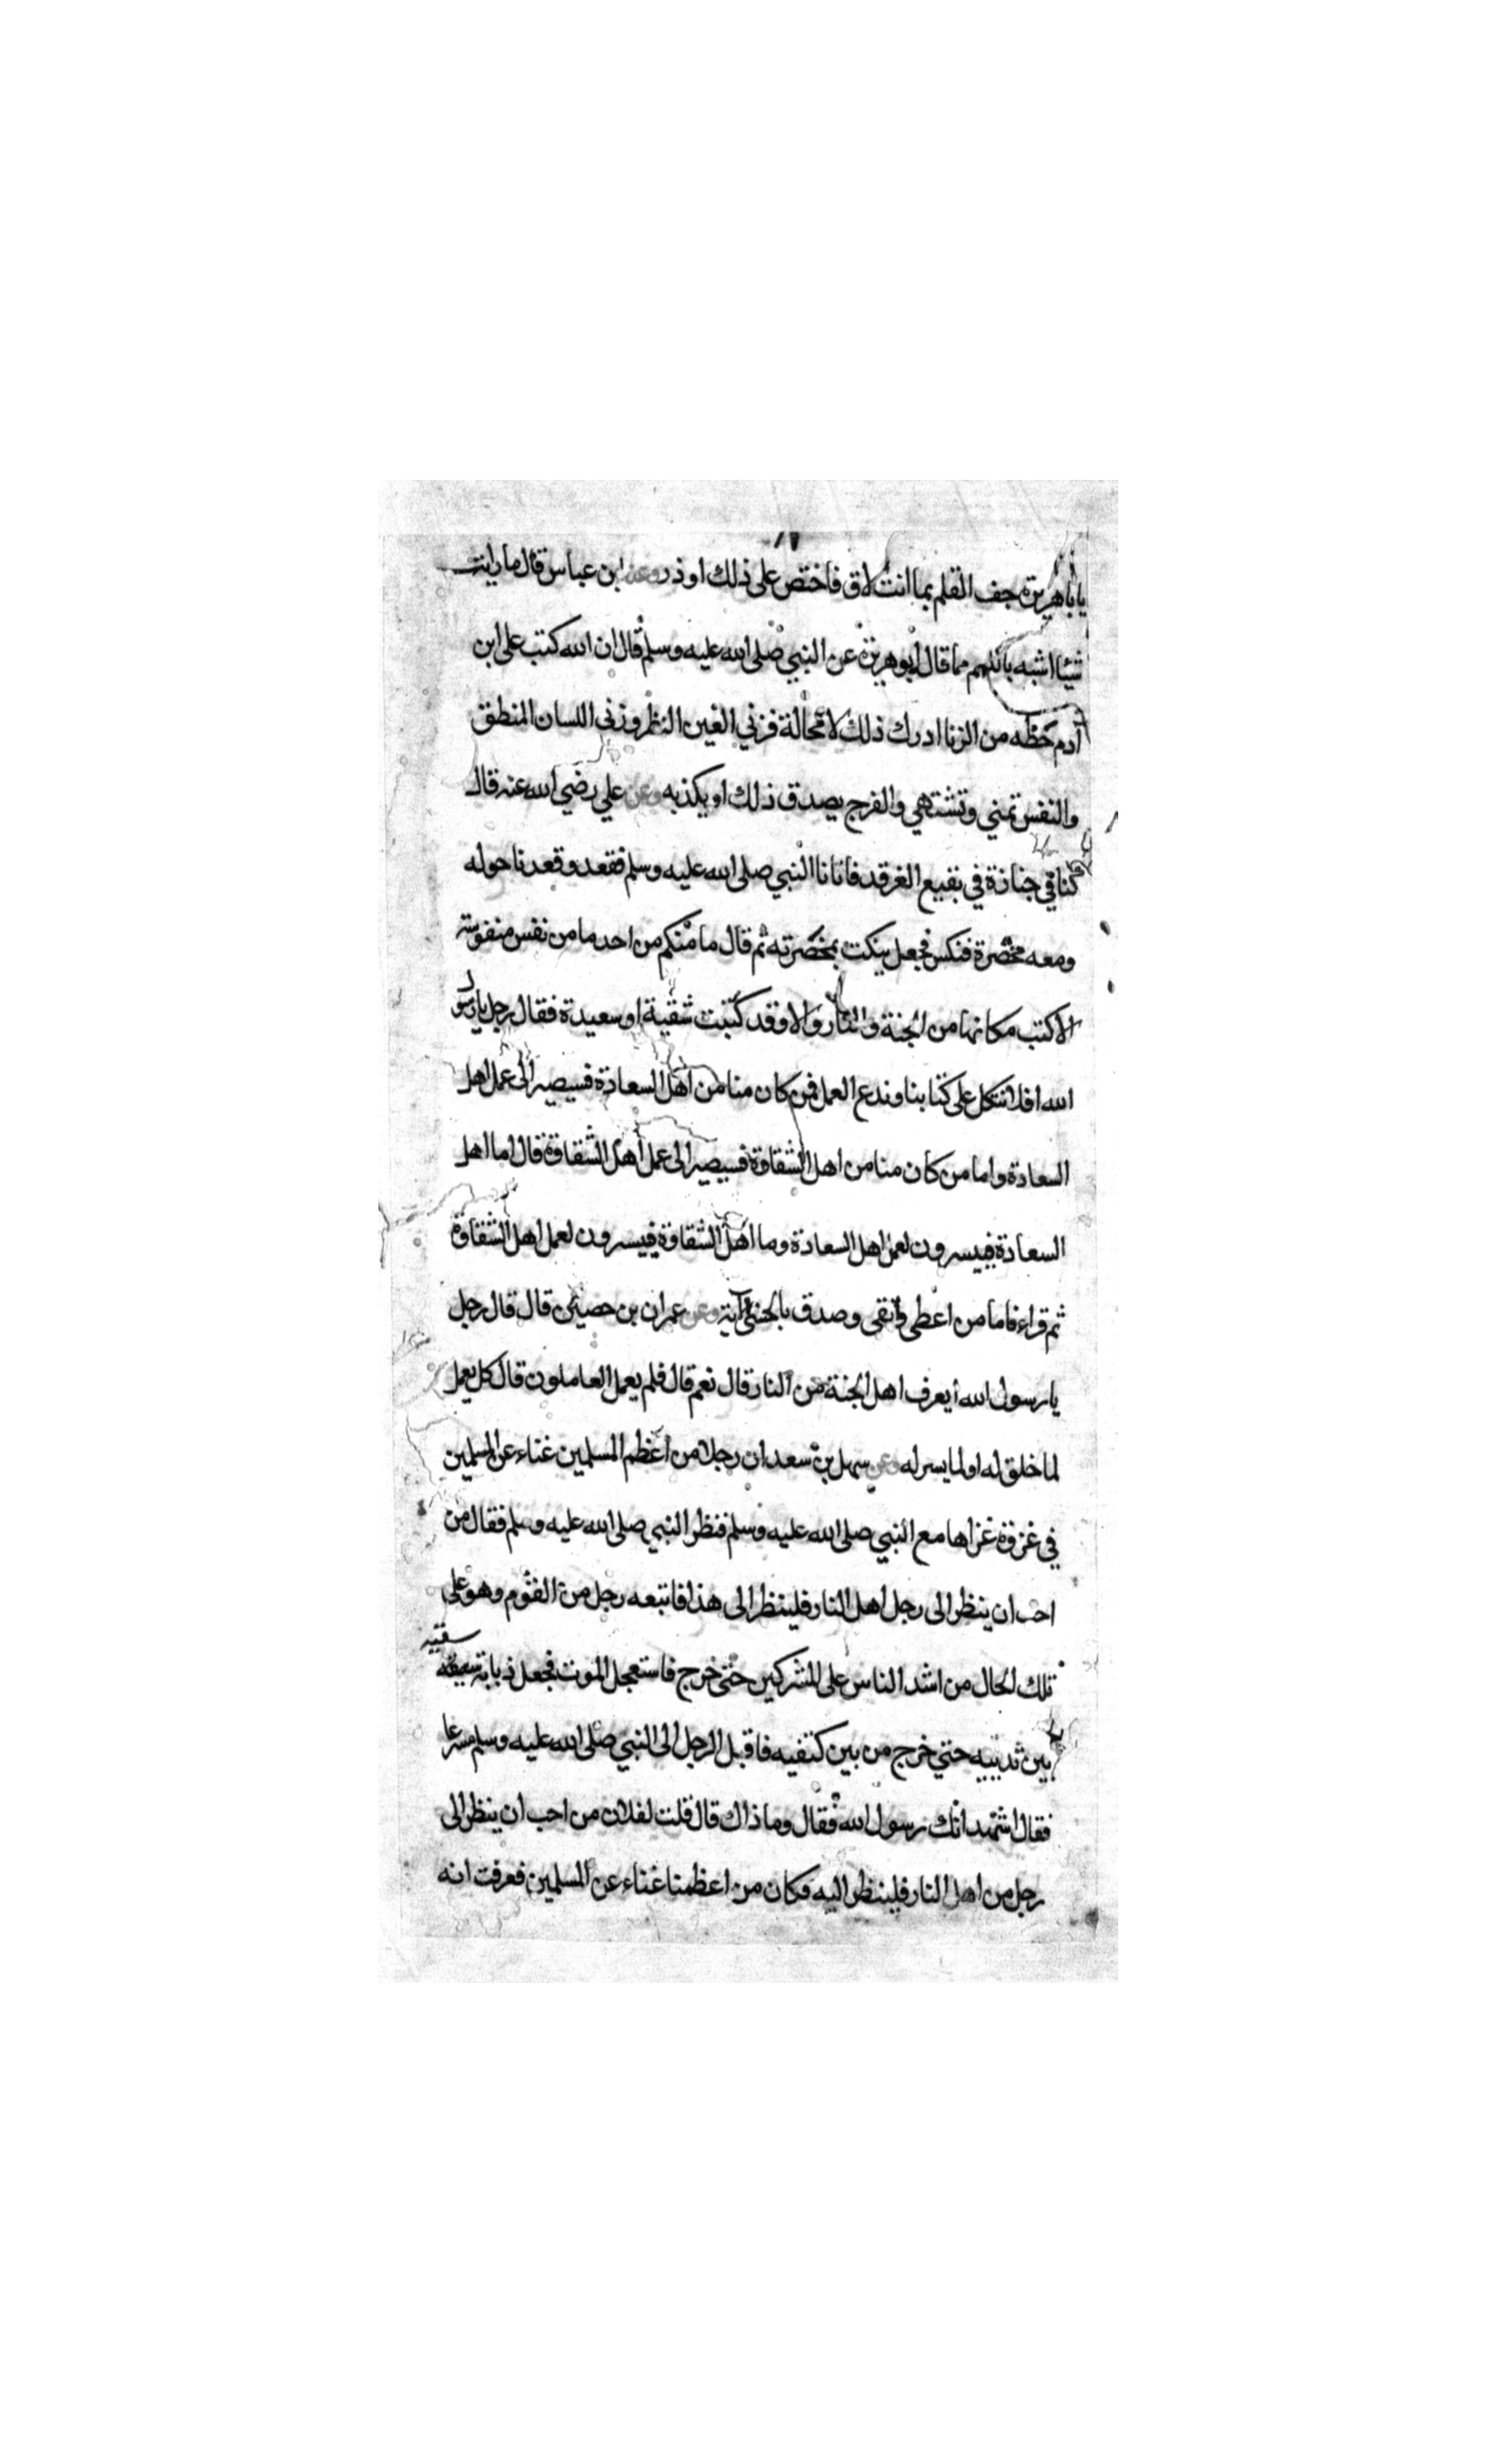 يا اباهريرة جف القلم بما انت لاق فاختص على ذلك او ذر وعن ابن عباس قال ما رايت
شيئا اشبه باللمم مما قال ابو هريرة عن النبي صلى الله عليه وسلم قال ان الله كتب على ابن
آدم حظه من الزنا ادرك ذلك لا محالة فزني العين النظر وزنى اللسان المنطق
والنفس تمني وتشتهي والفرج يصدق ذلك او يكذبه وعن علي رضي الله عنه قال
كنا في جنازة في بقيع الغرقد فاتانا النبي صلى الله عليه وسلم فقعد وقعدنا حوله
ومعه مخصرة فنكس فجعل ينكت بمخصرته ثم قال ما منكم من احد ما من نفس منفوسة
الا كتب مكانها من الجنة والنار والا وقد كتبت شقية او سعيدة فقال رجل يا رسول
الله افلا نتكل على كتابنا وندع العمل فمن كان منا من اهل السعادة فسيصير الى عمل اهل
السعادة واما من كان منا من اهل الشقاوة فسيصير الى عمل اهل الشقاوة قال اما اهل
السعادة فييسرون لعمل اهل السعادة وما اهل الشقاوة فييسرون لعمل اهل الشقاوة
ثم قراء فاما من اعطى واتقى وصدق بالحسنى الآية وعن عمران بن حصين قال قال رجل
يا رسول الله أيعرف اهل الجنة من النار قال نعم قال فلم يعمل العاملون قال كل يعمل
لما خلق له او لما يسر له وعن سهل بن سعد ان رجلا من اعظم المسلمين غناء عن المسلمين
في غزوة غزاها مع النبي صلى الله عليه وسلم فنظر النبي صلى الله عليه وسلم فقال من
احب ان ينظر الى رجل اهل النار فلينظر الى هذا فاتبعه رجل من القوم وهو على
تلك الحال من اشد الناس على المشركين حتى خرج فاستعجل الموت فجعل ذبابة سيفه
بين ثدييه حتي خرج من بين كتفيه فاقبل الرجل الى النبي صلى الله عليه وسلم مسرعا
فقال اشهد انك رسول الله فقال وما ذاك قال قلت لفلان من احب ان ينظر الى
رجل من اهل النار فلينظر اليه فكان من اعظمنا غناء عن المسلمين فعرفت انه